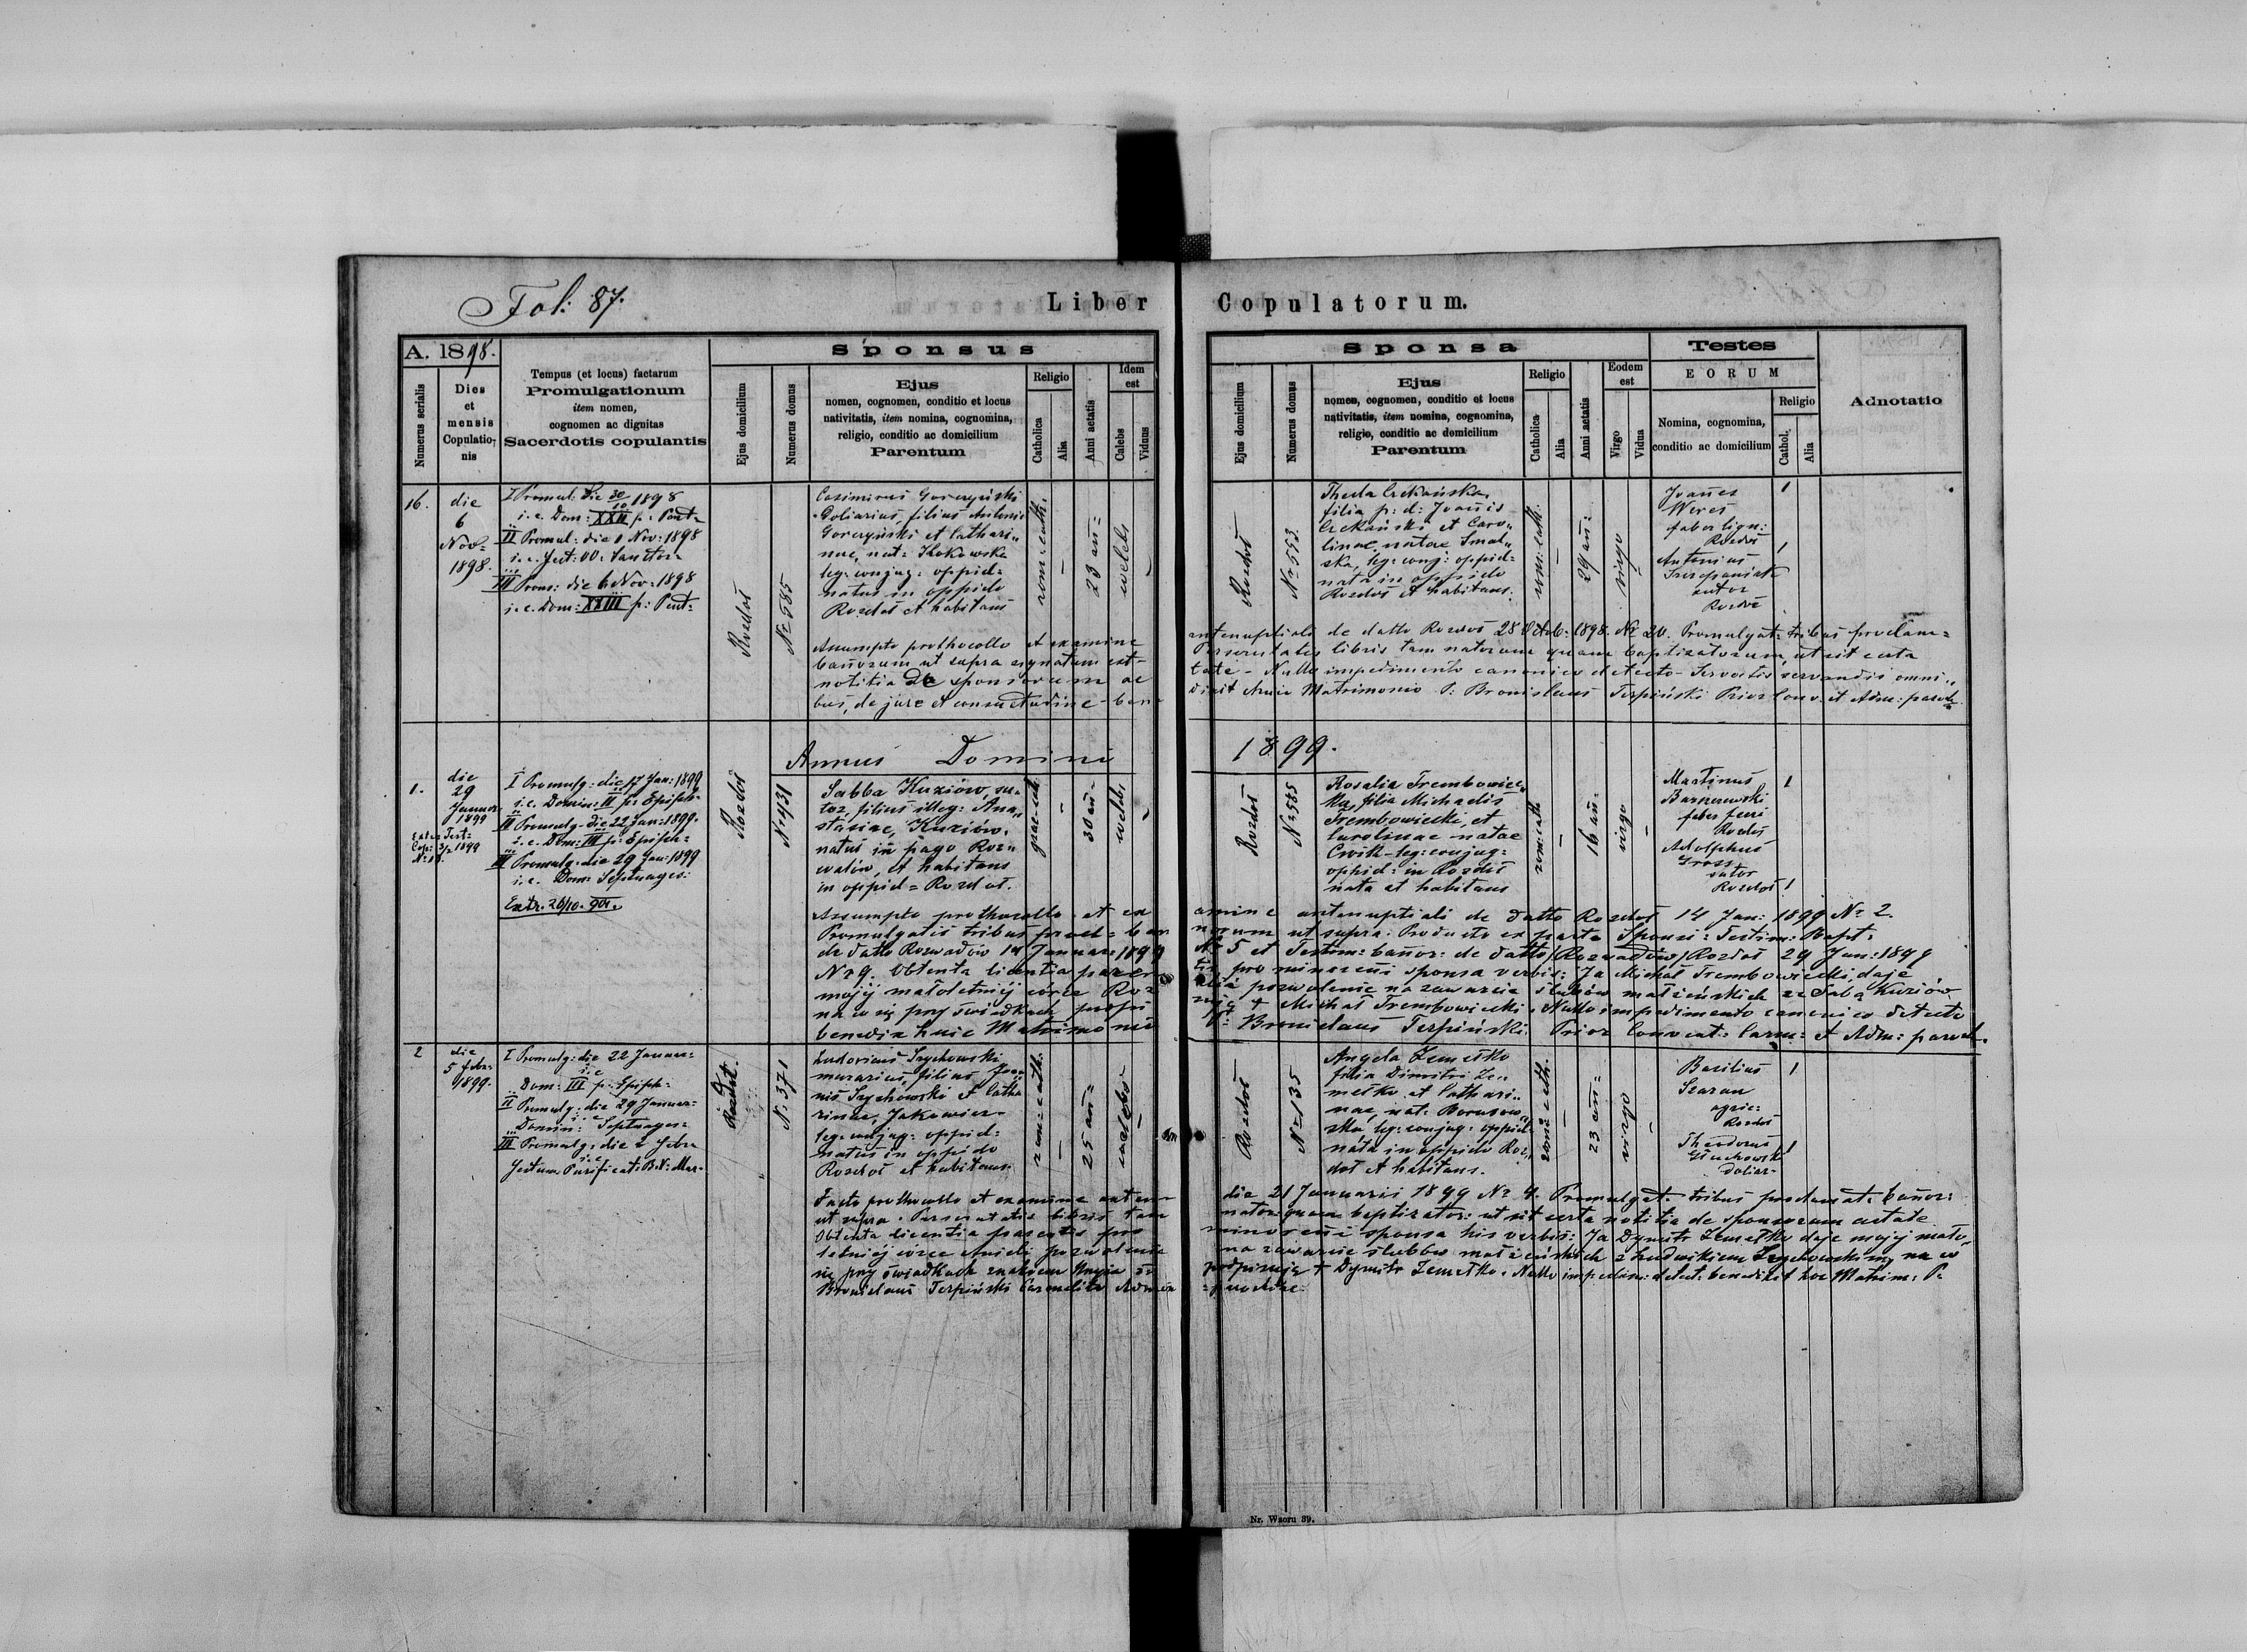 Fol: 87.
Liber Copulatorum.
A. 1898.
Numerus serialis
Dies et mensis Copulationis
Tempus (et locus) factarum
Promulgationum
item nomen,
cognomen ac dignitas
Sacerdotis copulantis
Sponsus
Ejus domicilium
Numerus domus
Ejus
nomen, cognomen, conditio et locus
nativitatis, item nomina, cognomina,
religio, conditio ac domicilium
Parentum
Religio
Catholica
Alia
Anni aetatis
Idem est
Caelebs
Viduus
Sponsa
Ejus domicilium
Numerus domus
Ejus
nomen, cognomen, conditio et locus
nativitatis, item nomina, cognomina,
religio, conditio ac domicilium
Parentum
Religio
Catholica
Alia
Anni aetatis
Eodem est
Virgo
Vidua
Testes
EORUM
Nomina, cognomina,
conditio ac domicilium
Religio
Cathol.
Alia
Adnotatio
16.
die
6
Nov:
1898.
I Promul: die 30/10 1898
i. e. Dom: XXII p: Pent:
II Promul: die 1 Nov: 1898
i. e. fest: OO. Sanctor:
III Prom: die 6 Nov: 1898
i. e. Dom: XXIII p: Pent:
Rozdoł
№ 585
Casimirus Goczyński
Doliarius, filius Antonii
Goczyński et Cathari„
nae, nat:
leg: conjug: oppid:
natus in oppido
Rozdoł et habitans
rom: cath:
23 an:
caelebs
Rozdoł
№ 553
Thecla
filia p: d: Joanis
et Caro„
linae, natae Smal„
ska, leg: conj: oppid:
nata in oppido
Rozdoł et habitans.
rom: cath:
29 an:
virgo
Joanes
Weres
faber lign:
Rozdoł
Antonius
sutor
Rozdoł
Assumpto prothocollo et examine antenuptiali de datto Rozdoł 28 Octob: 1898. № 20. Promulgat: tribus proclam=
banorum ut supra Perscrutatis libris tam natorum quam baptizatorum, ut sit certa
notitia de sponsorum ae tate – Nullo impedimento canonico detecto – Servatis servandis omni„
bus, de jure et consuetudine – ben dixit huic Matrimonio P: Bronislaus Terpiński Prior Conv: et Adm: paroch:
Annus Domini 1899.
1.
die
29
Januar:
1899
Extr: Test:
Cop: 3/2 1899
I Promulg: die 17 Jan: 1899
i. e. Domin: II p: Epiph:
II Promulg: die 22 Jan: 1899.
i. e. Dom: III p: Epiph:
III Promulg: die 29 Jan: 1899
i. e. Dom: Septuages:
Rozdoł
№ 431
Sabba Kuziów, su„
tor, filius illeg: Ana„
stasiae, Kuziów.
natus in pago Roz„
wadów, et habitans
in oppid= Rozdoł.
graec-cath
30 an:
caelebs
Rozdoł
№ 585
Rosalia Trembowiec„
ka, filia Michaelis
Trembowiecki, et
Carolinae natae
Cwik – leg: conjug:
oppid: in Rozdoł
nata et habitans
rom: cath
16 an:
virgo
Martinus
faber ferri
Rozdoł
Adolphus
Gross
sutor
Rozdoł
Assumpto prothocollo et ex amine antenuptiali de datto Rozdoł 14 Jan: 1899 № 2.
Promulgatis tribus procl= ban norum ut supra. Producto ex parte Sponsi: Testim: Bapt:
de datto Rozwadów 14 Januar: 1899 № 5 et Testim: banor: de datto Rozwadów/Rozdoł 29 Jan: 1899
№ 9. Obtenta licentia paren tis pro minoreni sponsa verbis: Ja Michał Trembowiecki, daję
mojej małoletniej córce Roz alii pozwolenie na zawarcie ślubów małżeńskich ze Sabą Kuziów
na co się przy świadkach podpi suję + Michał Trembowiecki. Nullo impedimento canonico detecto
benedixit huic Matrimonio P: Bronislaus Terpiński Prior Convent: Carm: et Adm: paroch.
2
die
5 febr:
1899.
I Promulg: die 22 Januar:
i. e.
Dom: III p: Epiph:
II Promulg: die 29 Januar:
i. e.
Domin: Septuages:
III Promulg: die 2 febr:
i. e.
festum Purificat: B.V: Mar:
Rozdoł.
№ 371
Ludovicus Szychowski
murarius, filius Joa„
nis Szychowski et Catha
rinae,
leg: conjug: oppid:
natus in oppido
Rozdoł et habitans
rom: cath:
25 an:
caelebs
Rozdoł
№ 135
Angela Zemełko
filia Dimitri Ze„
mełko et Cathari„
nae, nat:
leg: conjug: oppid:
nata in oppido Roz„
doł et habitans.
rom: cath.
23 an:
virgo
Basilius
Szaran
agric:
Rozdoł
Theodorus
doliar:
Facto prothocollo et examine anten die 21 Januarii 1899 № 4. Promulgat: tribus proclamat: banor:
ut supra. Perscrutatis libris tam nator: quam baptizator: ut sit certa notitia de sponsorum aetate
Obtenta licentia parentis pro minoreni sponsa his verbis: Ja Dymitr Zemełko daję mojej mało„
letniej córce Anieli pozwolenie na zawarcie ślubów małżeńskich z Ludwikiem Szychowskim, na co
się przy świadkach znakiem Krzyża św podpisuję + Dymitr Zemełko. Nullo impedim: detect: benedixit hoc Matrim: P:
Bronislaus Terpiński Carmelita Admin
Nr. Wzoru 39.